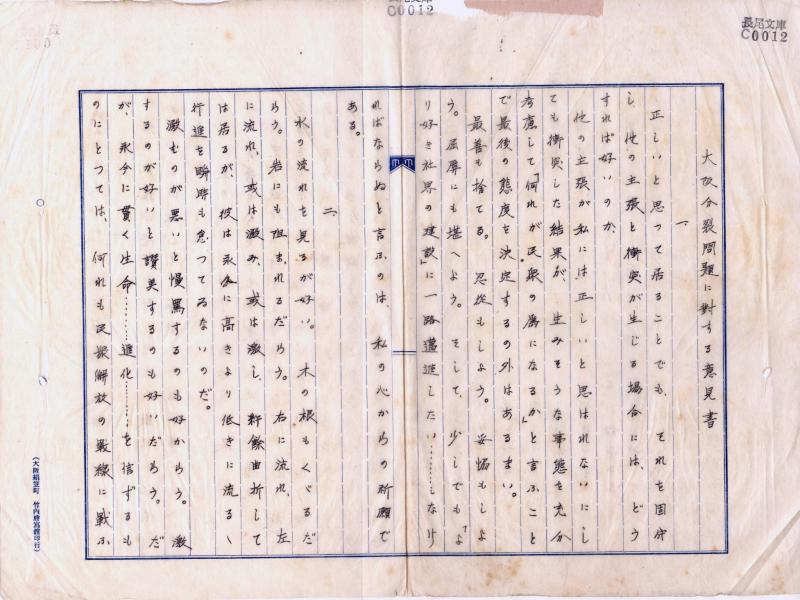 長尾文庫
C0012
長尾文庫
C0012
大阪分裂問題に對する意見書
一、
正しいと思つて居ることでも、それを固守
し、他の主張と衝突が生じる場合には、どう
すれば好いのか、
他の主張が私には正しいと思はれないにし
ても衝突した結果が、生みそうな事態を充分
考慮して「何れが民衆の為になるか」と言ふこと
で最後の態度を決定するの外はあるまい。
最善も捨てる。忍従もしよう。妥協もしよ
う。屈辱にも堪へよう。そして、少しでも「よ
り好き社界の建設」に一路邁進したい………しなけ
ればならぬと言ふのは、私の心からの祈願で
ある。
二、
水の流れを見るが好い。木の根もくぐるだ
らう。岩にも阻まれるだらう。右に流れ、左
に流れ、或は澱み、或は激し、紆餘曲折して
は居るが、彼は永久に高きより低きに流るゝ
行進を瞬時も怠つてゐないのだ。
澱むものが悪いと慢罵するのも好からう。激
するのが好いと讃美するのも好いだらう。だ
が、永久に貫く生命………進化………を信ずるも
のにとつては、何れも民衆解放の戦線に戦ふ
(大阪絹笠町 竹内謄寫館印行)